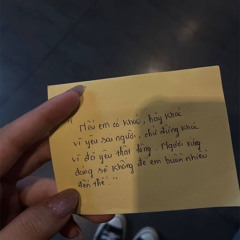 " Nếu em có khóc, hãy khóc
vì yêu sai người, chứ đừng khóc
vì đã yêu thật lòng. Người xứng
đáng sẽ không để em buồn nhiều
đến thế. "